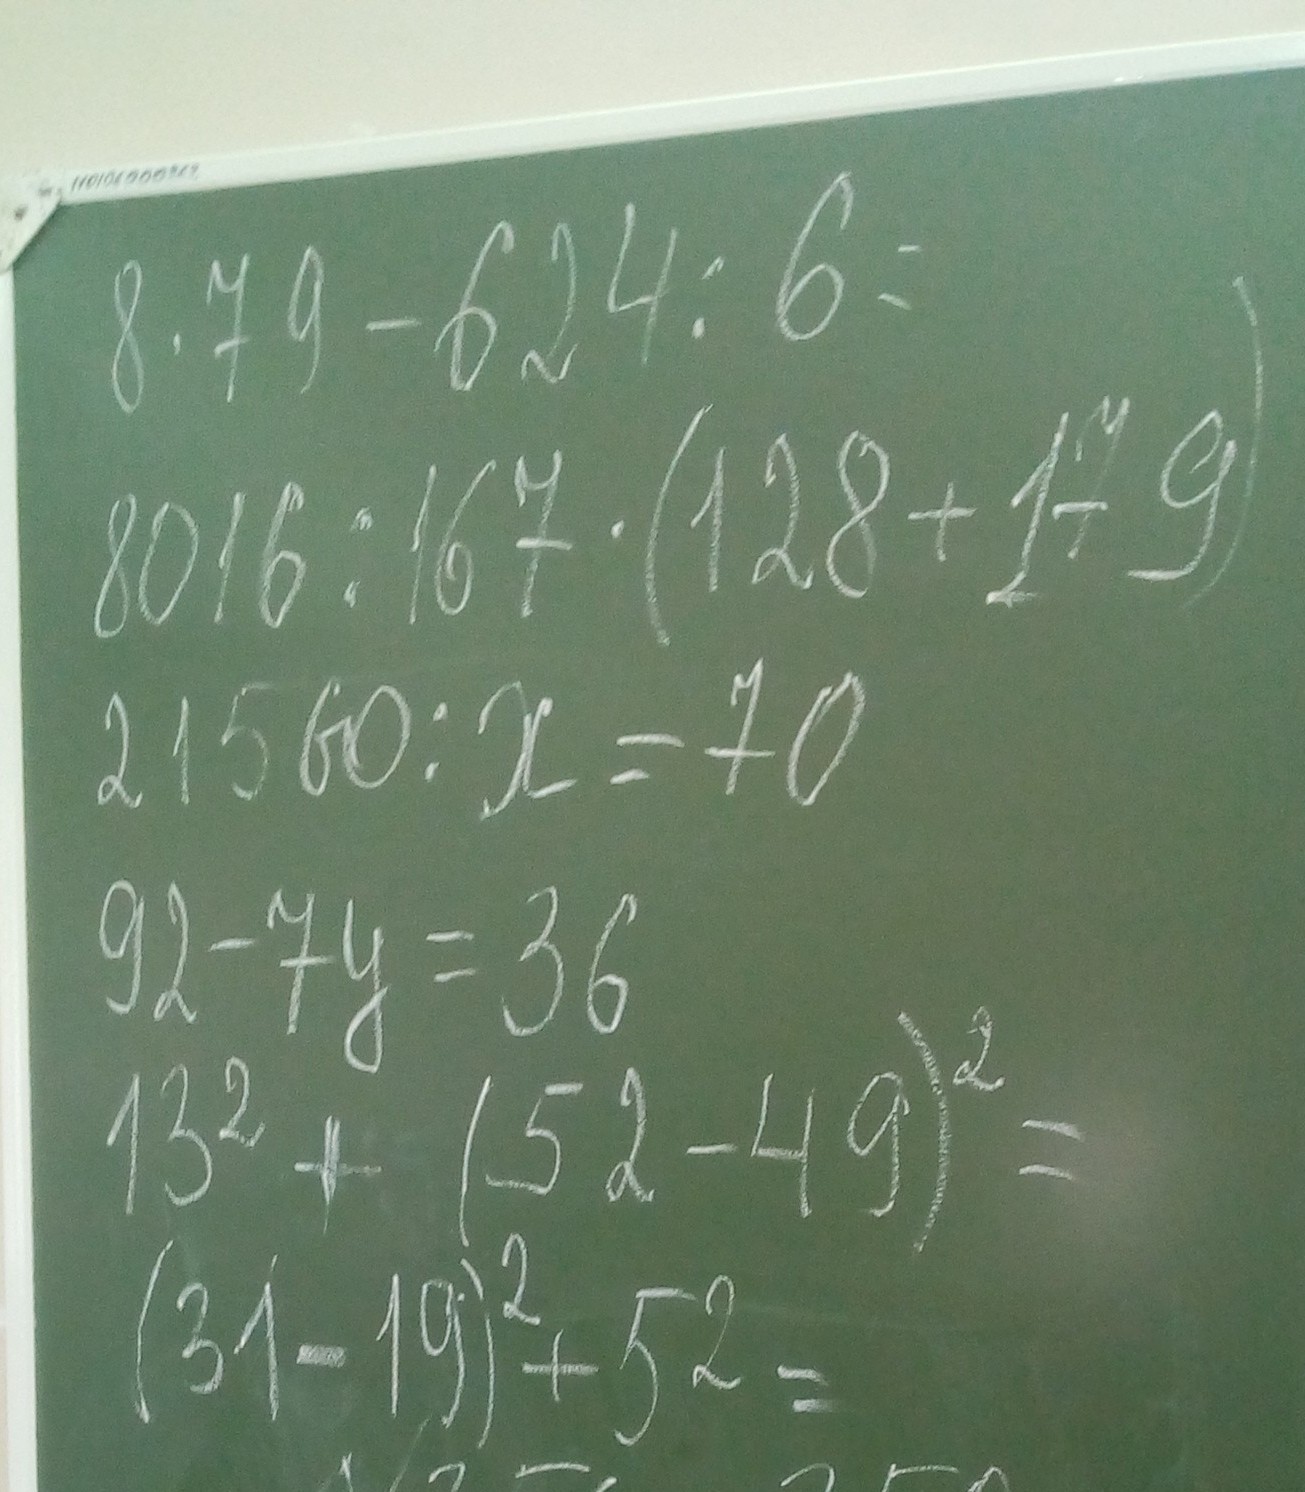 8·79-624:6=
8016:167·(128+179)
21560:x=70
92-7y=36
13²+(52-49)²=
(31-19)²+5²=